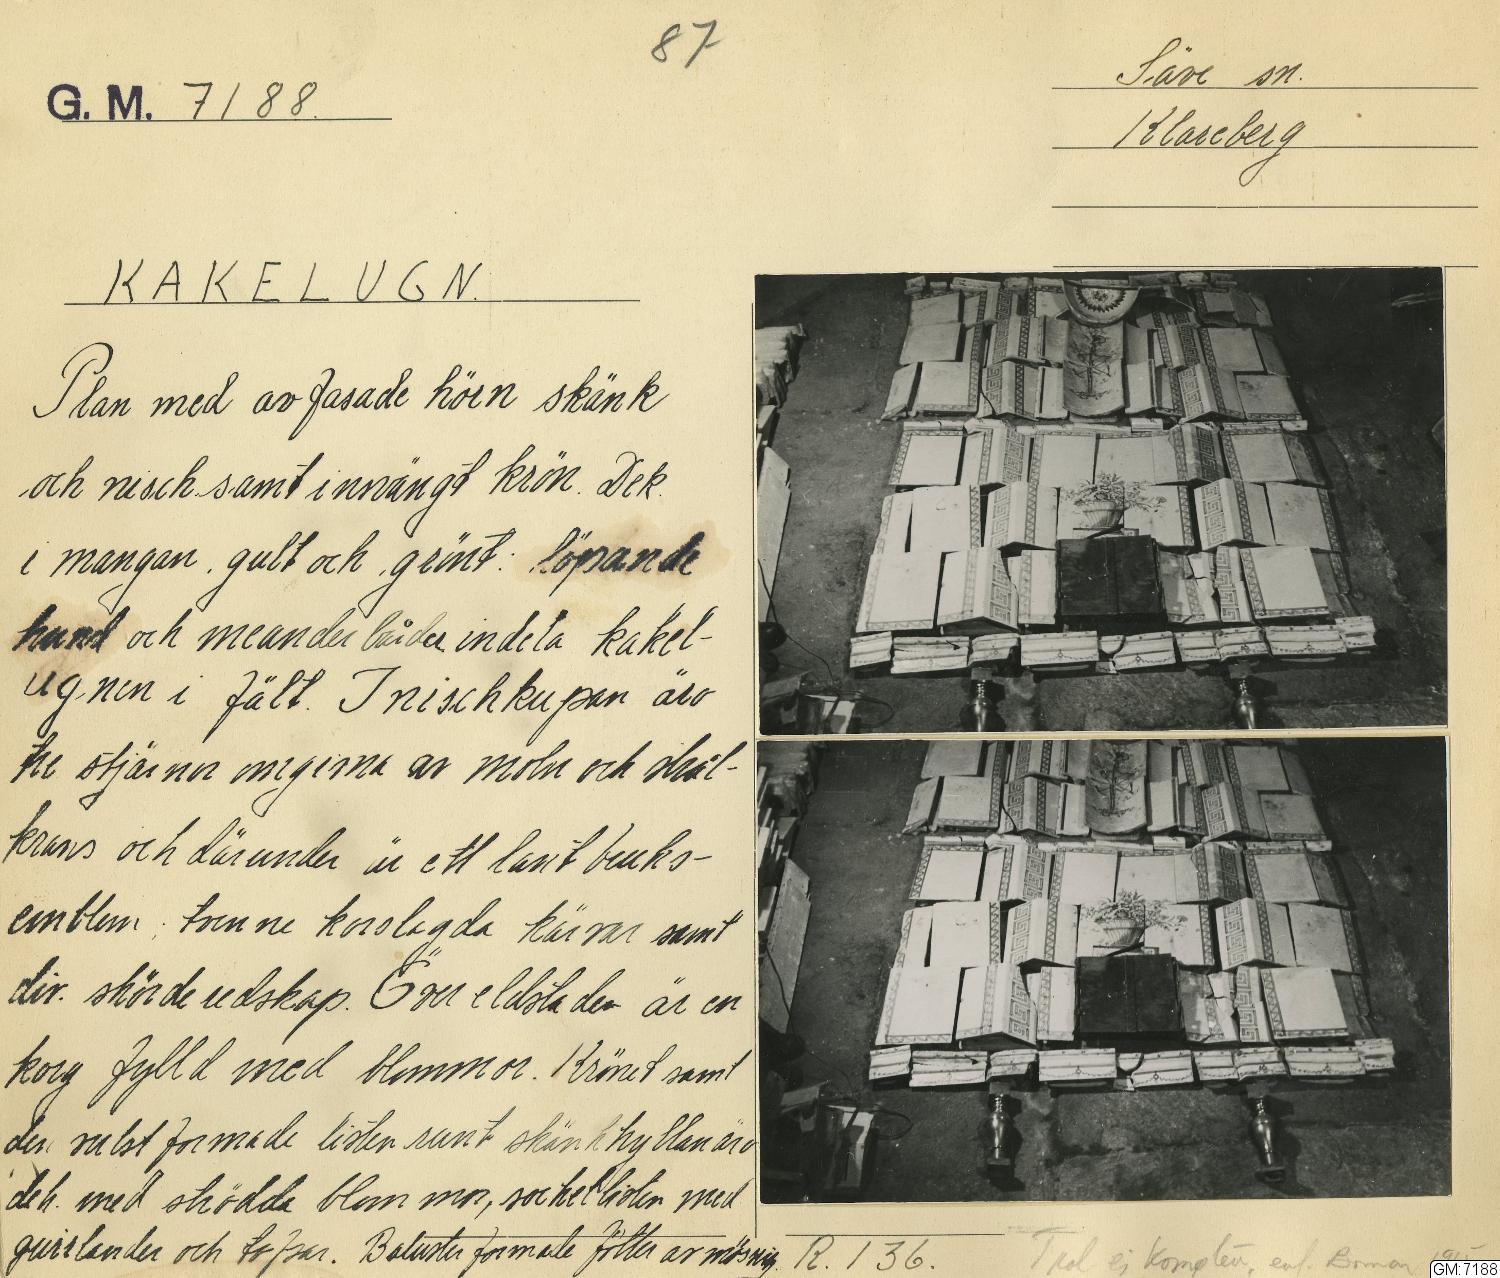 87
G. M. 7188.
Säve sn.
Klareberg
KAKELUGN.
Plan med avfasade hörn skänk
och nisch samt insvängt krön. Dek.
i mangan, gult och grönt: löpande
hund och meanderbårder indela kakel-
ugnen i fält. I nischkupan äro
tre stjärnor omgivna av moln och strål-
krans och därunder är ett lantbruks-
emblem; tvenne korslagda kärvar samt
div. skörderedskap. Över eldstaden är en
korg fylld med blommor. Krönet samt
den vulstformade listen runt skänkhyllan äro
dek. med strödda blommor, sockellisten med
guirlander och tofsar. Balusterformade fötter av mässing.
R. 136.
Trol ej komplett, enl.
GM:7188